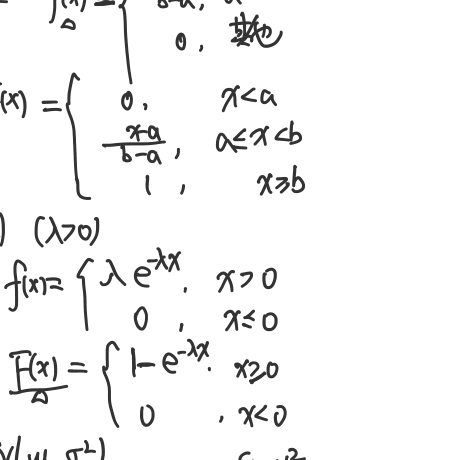 0,
F(x) = { 0, x<a
(x-a)/(b-a), a≤x<b
1, x≥b
(λ>0)
f(x)= { λe^{-λx}, x>0
0, x≤0
F(x) = { 1-e^{-λx}, x≥0
0, x<0